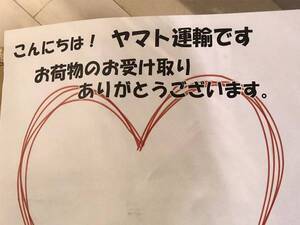 こんにちは！ ヤマト運輸です
お荷物のお受け取り
ありがとうございます。